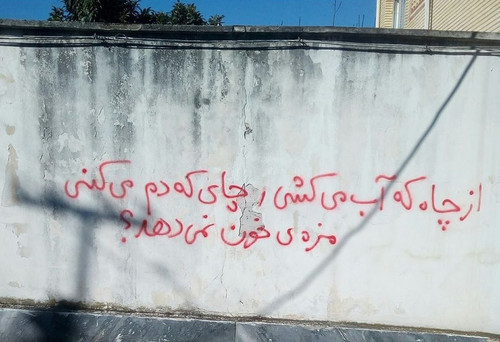 از چاه که آب می کشی ، چای که دم می کنی
مزه ی خون نمی دهد؟